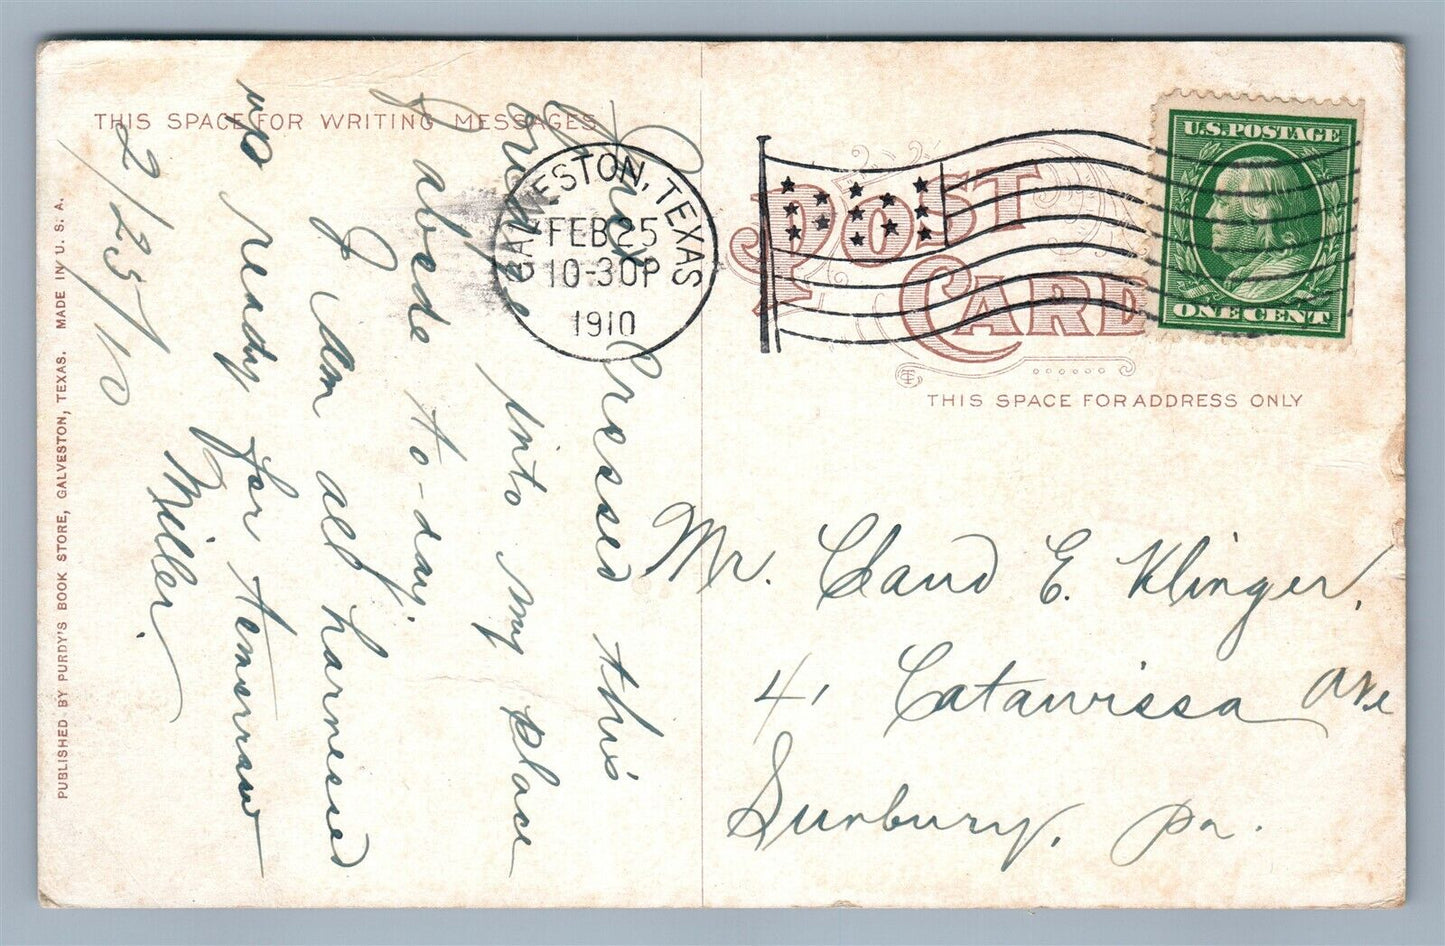 THIS SPACE FOR WRITING MESSAGES
GALVESTON, TEXAS
FEB 25
10-30P
1910
U.S. POSTAGE
ONE CENT
POST CARD
THIS SPACE FOR ADDRESS ONLY
Mr. Claud E. Klinger,
41 Catawissa Ave
Sunbury, Pa.
Have Crossed this
into my place
abode to-day.
I am all harnessed
up ready for
Miller.
2/25/10
PUBLISHED BY PURDY'S BOOK STORE, GALVESTON, TEXAS. MADE IN U. S. A.